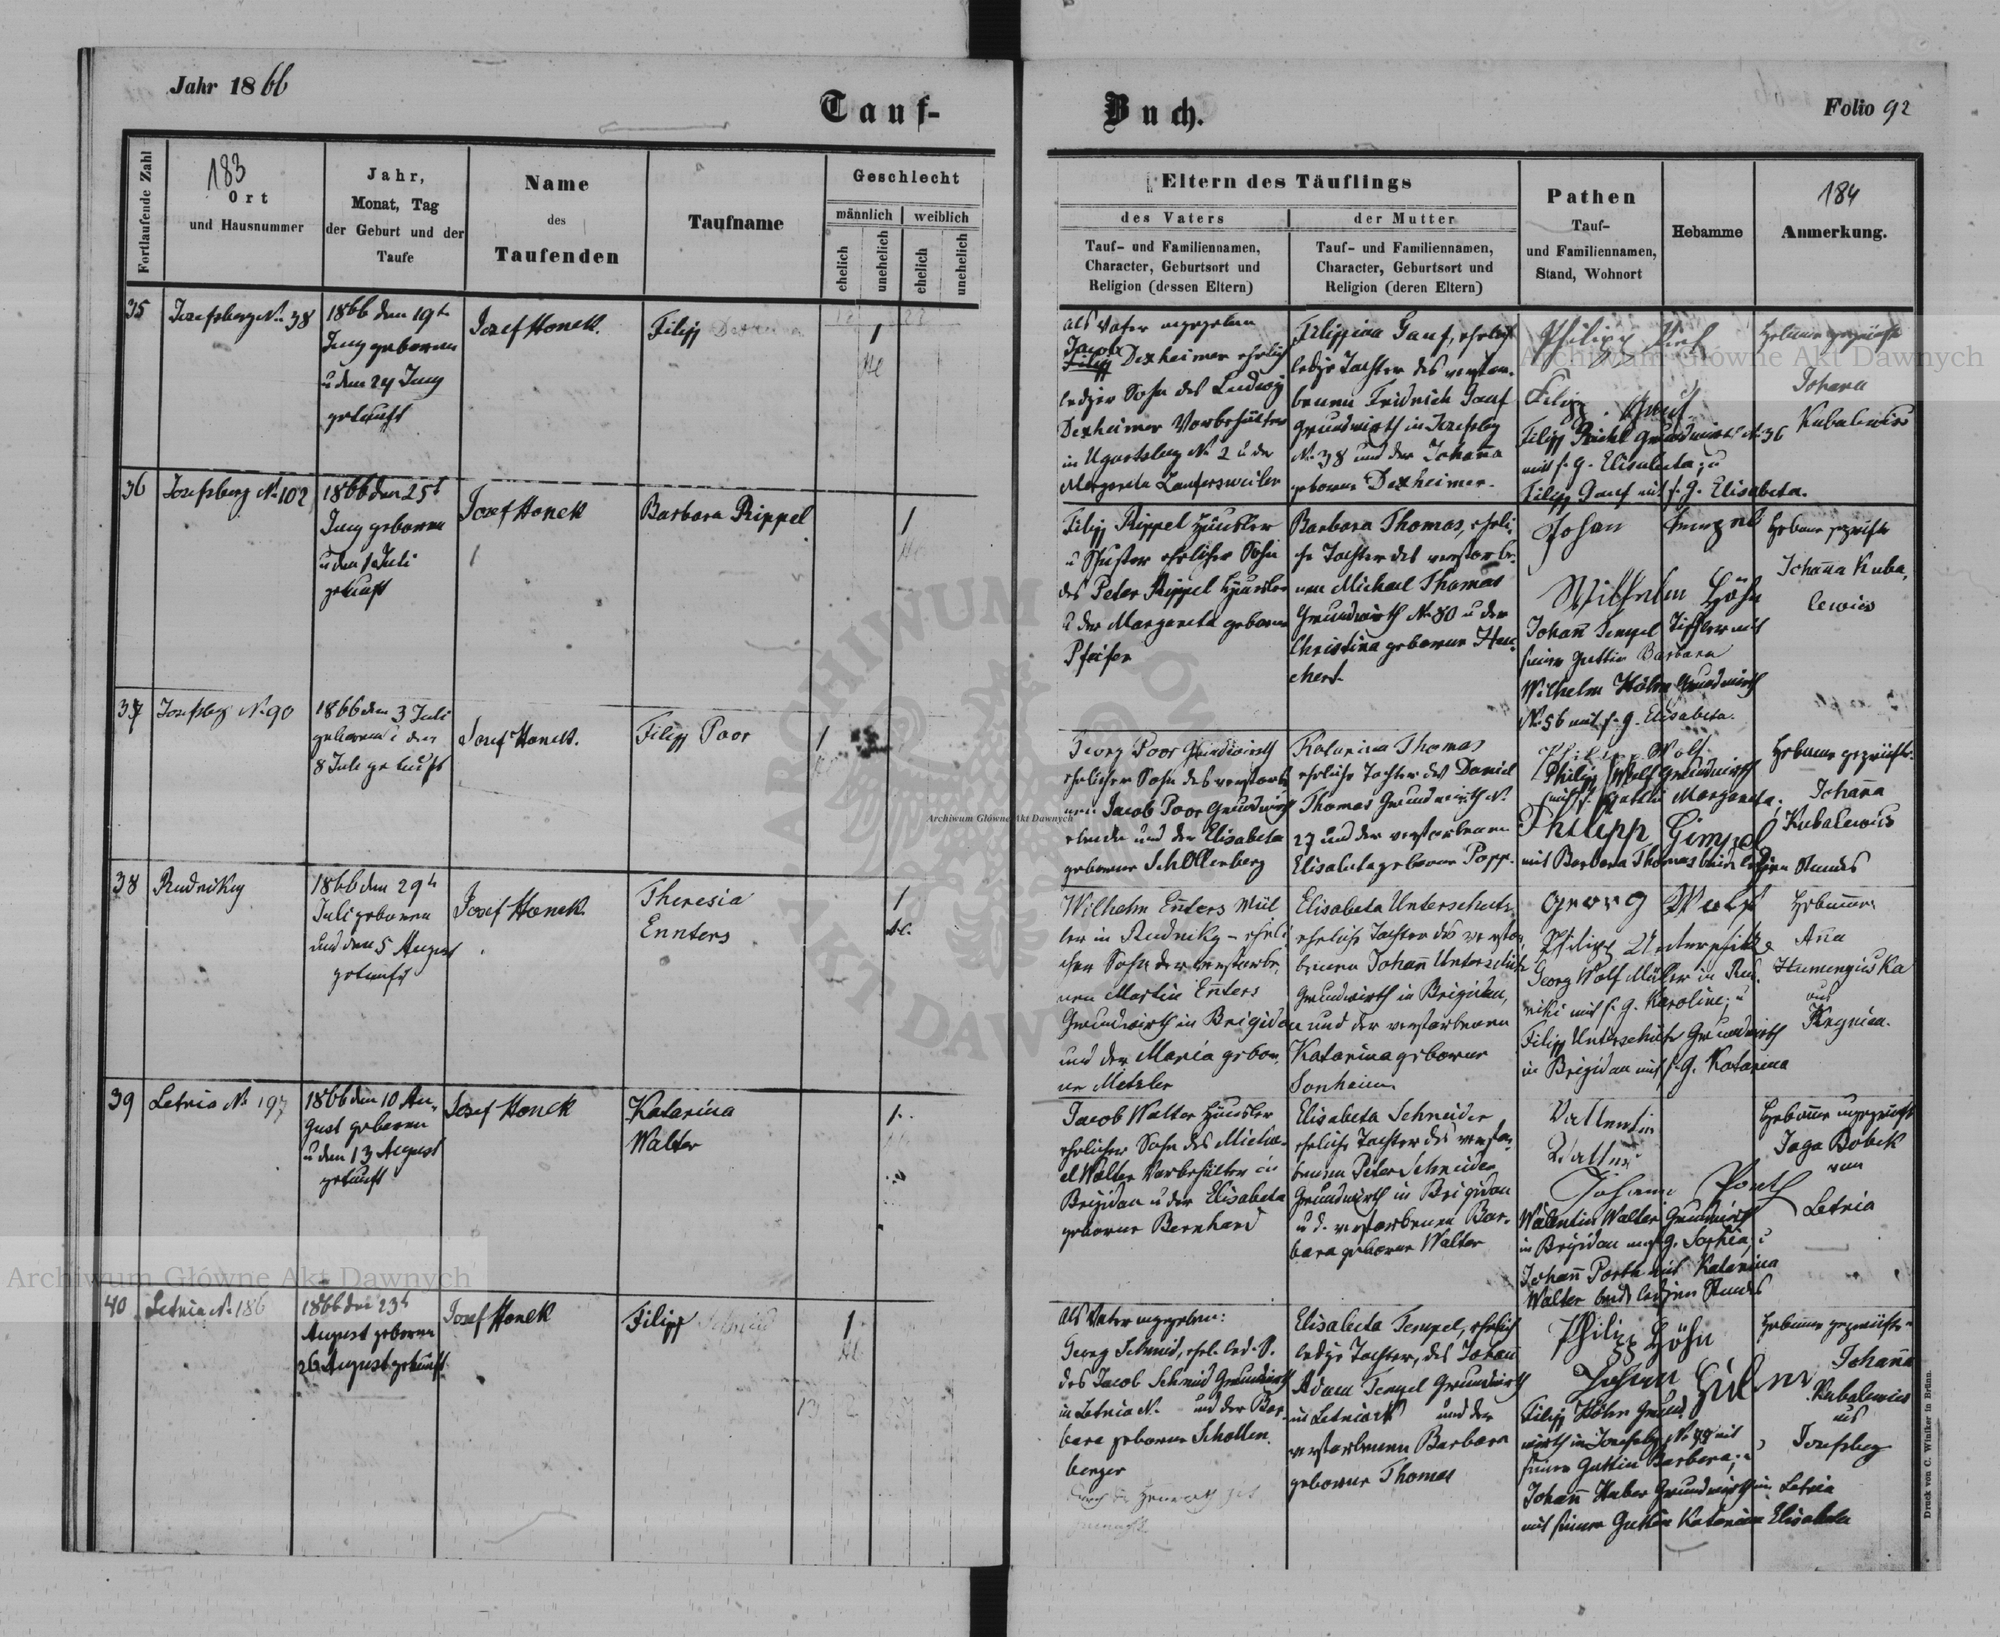 Jahr 1866
Tauf-
Buch.
Folio 92
Fortlaufende Zahl
183
Ort
und Hausnummer
Jahr,
Monat, Tag
der Geburt und der
Taufe
Name
des
Taufenden
Taufname
Geschlecht
männlich
weiblich
ehelich
unehelich
ehelich
unehelich
Eltern des Täuflings
des Vaters
der Mutter
Tauf- und Familiennamen,
Character, Geburtsort und
Religion (dessen Eltern)
Tauf- und Familiennamen,
Character, Geburtsort und
Religion (deren Eltern)
Pathen
Tauf-
und Familiennamen,
Stand, Wohnort
Hebamme
184
Anmerkung.
35
Josefsberg No 38
1866 den 19t
Juny geboren
u den 24 Juny
getauft
Josef Honek.
Filipp
1
als Vater angegeben
Jacob
Filipp Dexheimer ehelich
lediger Sohn des Ludwig
Dexheimer Vorbehälter
in Ugartsberg No 2 u der
Margareta Lautersweiler
Filippina Gauf, ehelich
ledige Tochter des verstor-
benen Fridrich Gauf
Grundwirth in Josefsbg
No 38 und der Johanna
geborene Dexheimer.
Filipp Grundwirth No 36
mit s. g. Elisabeta; u
Filipp Gauf mit s. g. Elisabeta.
Hebamme geprüfte
Johana
Kubalewics
36
Josefsberg No 102
1866 den 25t
Juny geboren
u den 1 Juli
getauft
Josef Honek
Barbara Rippel
1
Filipp Rippel Häusler
u Schuster ehelicher Sohn
des Peter Rippel Häusler
u der Margareta geborene
Pfeifer
Barbara Thomas, eheli-
che Tochter des verstorbe-
nen Michael Thomas
Grundwirth No 80 u der
Christina geborene Hau-
chert
Johan
Wilhelm Höhn
Johann Tempel Tischler mit
seiner Gattin Barbara
Wilhelm Höhn Grundwirth
No 56 mit s. g. Elisabeta.
Hebame geprüfte
Johanna Kuba-
lewics
37
Josefsbg No 90
1866 den 3 Juli
geboren u den
8 Juli getauft
Josef Honek.
Filipp Poor
1
Georg Poor Grundwirth
ehelicher Sohn des verstorbe
nen Jacob Poor Grundwirth
und der Elisabeta
geborene Schöllenberg
Katarina Thomas
eheliche Tochter des Daniel
Thomas Grundwirth No
27 und der verstorbenen
Elisabeta geborene Popp.
Philipp Wolf
Philipp Wolf Grundwirth
mit s. Gattin Margareta;
Philipp Gimpel
mit Barbara Thomas beide ledigen Standes
Hebame geprüfte
Johanna
Kubalewics
38
Rudniky
1866 den 29t
Juli geboren
und den 5 August
getauft
Josef Honek.
Theresia
Ennters
1
Wilhelm Enters Mül
ler in Rudniky - eheli
cher Sohn der verstorbe-
nen Martin Enters
Grundwirth in Brigidau
und der Maria gebor-
ne Metzler
Elisabeta Unterschütz
eheliche Tochter des verstor
benen Johann Unterschütz
Grundwirth in Brigidau,
und der verstorbenen
Katarina geborene
Sonheim
Georg Wolf
Philipp Unterschütz
Georg Wolf Müller in Rud-
niki mit s. g. Karoline; u
Filipp Unterschütz Grundwirth
in Brigidau mit s. g. Katarina
Hebamme
Anna
aus
39
Letnia No 197
1866 den 10 Au-
gust geboren
u den 13 August
getauft
Josef Honek
Katarina
Walter
1.
Jacob Walter Häusler
ehelicher Sohn des Micha-
el Walter Vorbehälter in
Brigidau u der Elisabeta
geborene Bernhard
Elisabeta Schneider
eheliche Tochter des verstor-
benen Peter Schneider
Grundwirth in Brigidau
u d. verstorbenen Bar-
bara geborene Walter
Vallentin
Walter
Johann Porth
Walentin Walter Grundwirth
in Brigidau m. s. g. Sophia; u
Johann Porth mit Katarina
Walter beide ledigen Standes
Hebamme ungeprüft
Jaga Bobek
von
Letnia
40
Letnia No 186
1866 den 23t
August geboren
26 August getauft
Josef Honek
Filipp Schmid
1
als Vater angegeben:
Georg Schmid, ehel. led. S.
des Jacob Schmid Grundwirth
in Letnia No und der Bar-
bara geborene Schollen-
berger
Elisabeta Tempel, ehelich
ledige Tochter, des Johann
Adam Tempel Grundwirth
in Letnia No und der
verstorbenen Barbara
geborene Thomas
Philipp Höhn
Filipp Höhn Grund
wirth in Josefsbg, mit
seiner Gattin Barbara; u
Johann Huber Grundwirth in Letnia
mit seiner Gattin Katarina Elisabeta
Hebamme geprüfte
Johanna
Kubalewics
aus
Josefsberg
Druck von C. Winiker in Brünn.
Archiwum Główne Akt Dawnych
Archiwum Główne Akt Dawnych
Archiwum Główne Akt Dawnych
ARCHIWUM GŁÓWNE AKT DAWNYCH